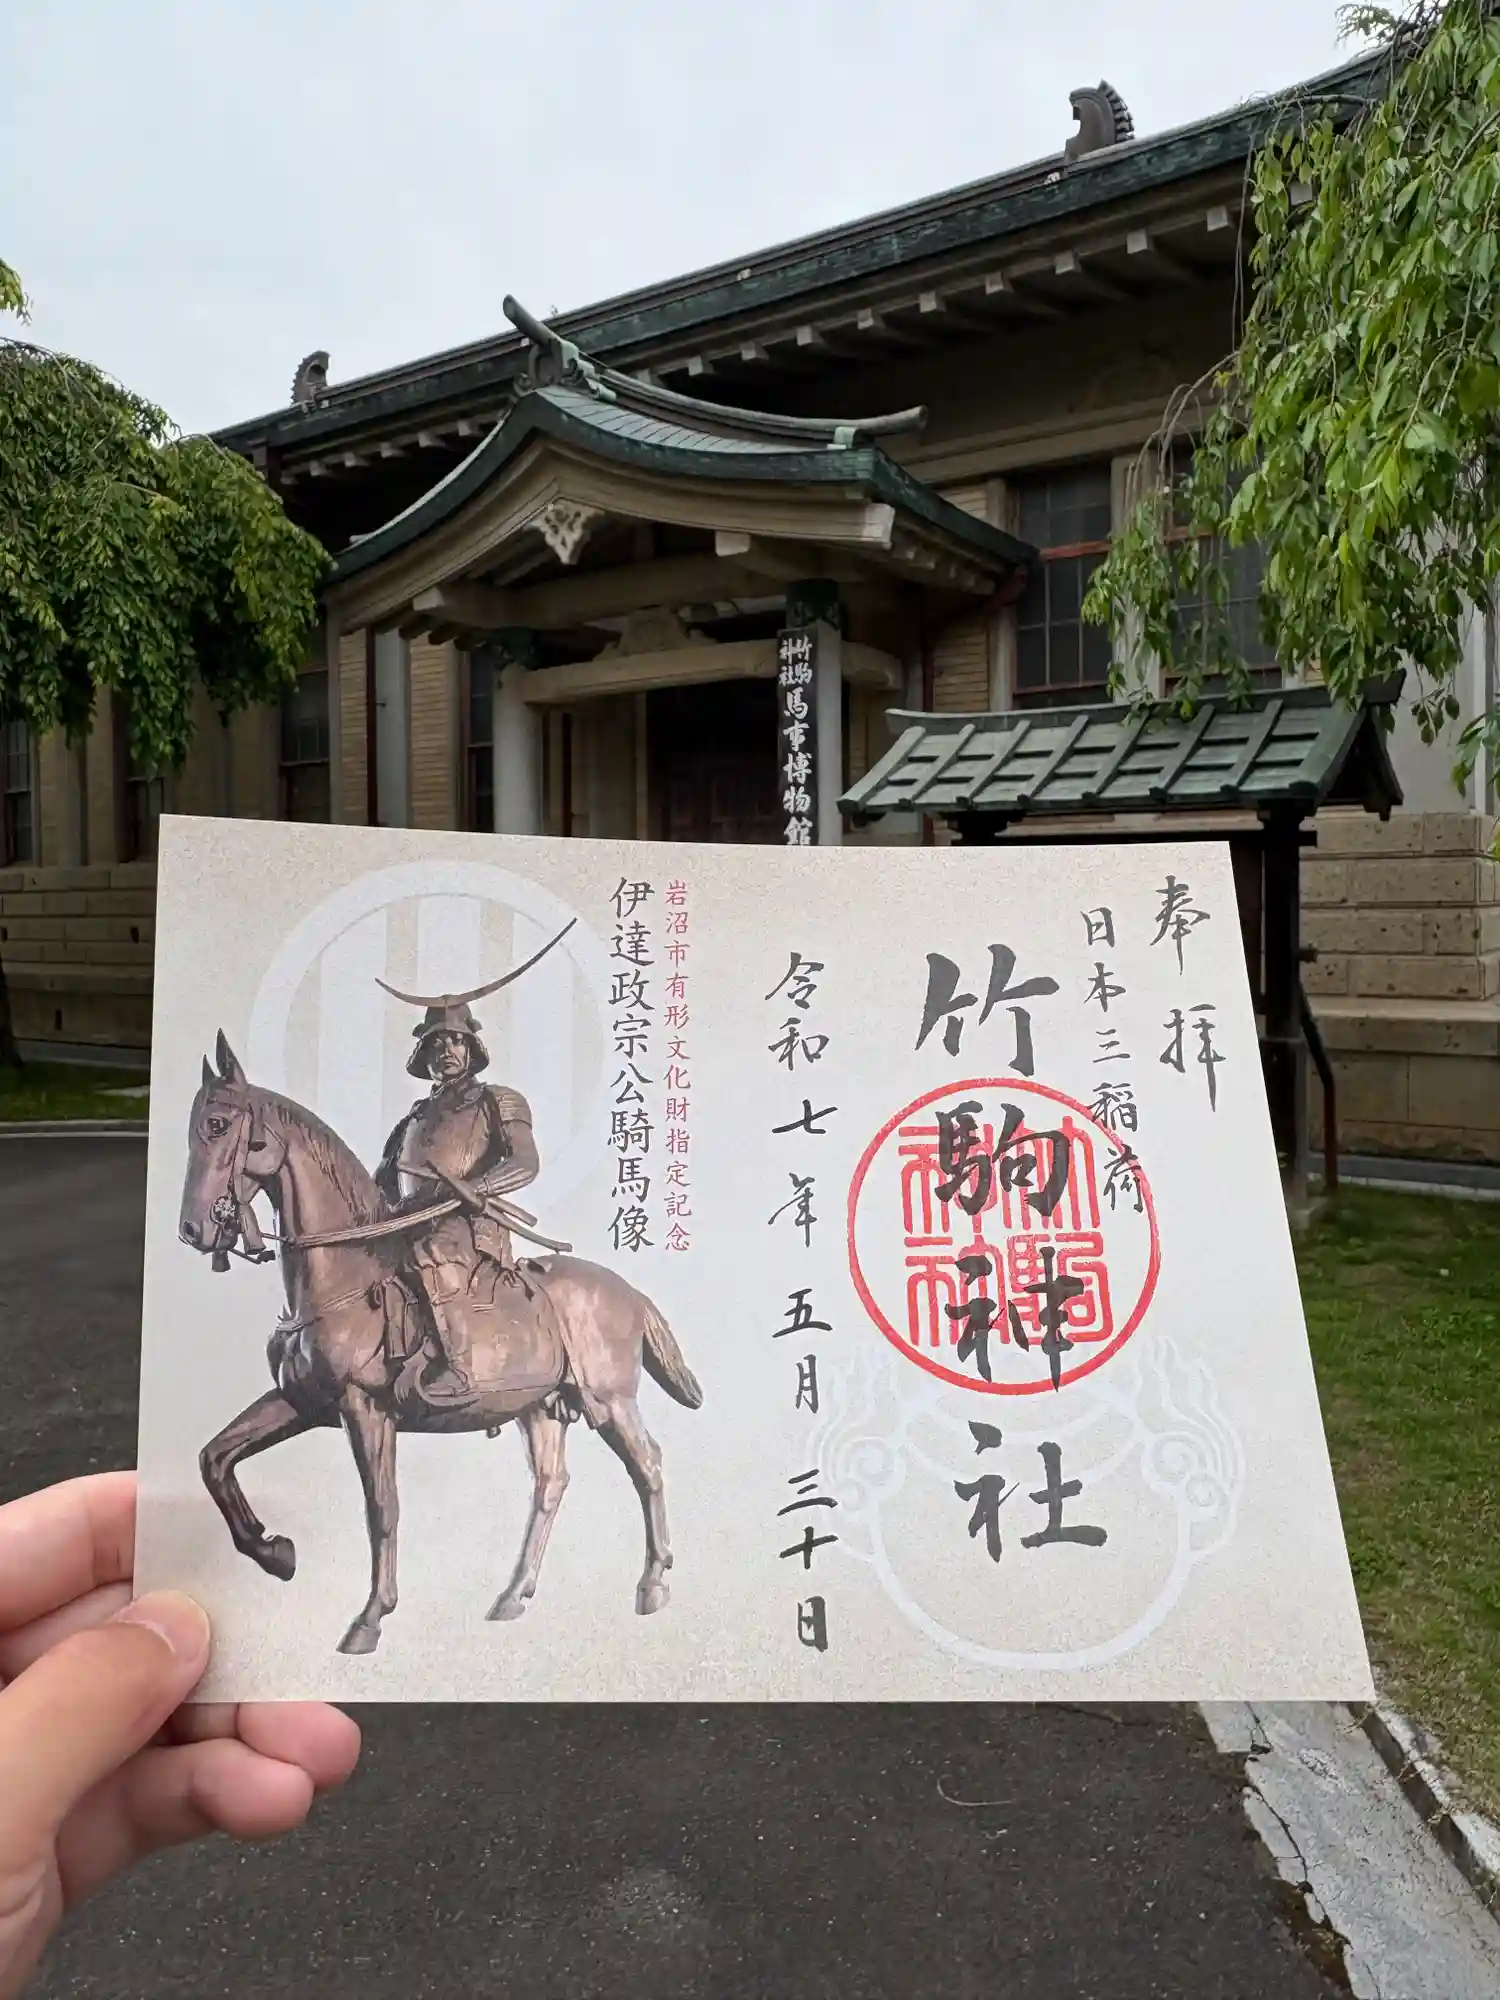 竹駒
神社
馬事博物館
奉拝
日本三稲荷
竹駒神社
竹駒
神社
令和七年五月三十日
岩沼市有形文化財指定記念
伊達政宗公騎馬像